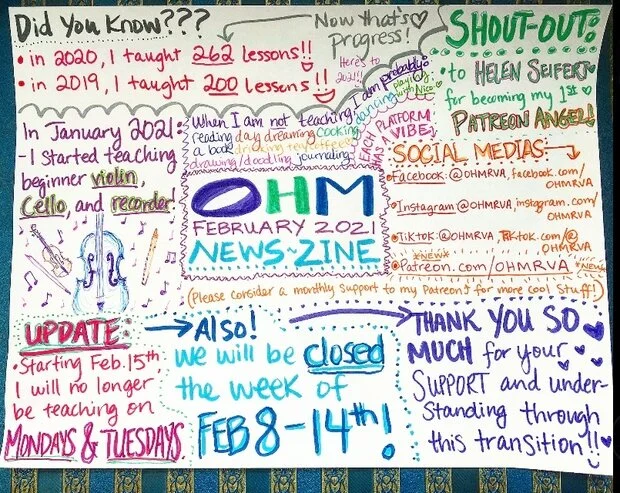 Did You Know???
• in 2020, I taught 262 lessons!!
• in 2019, I taught 200 lessons!!
Now that's
Progress!
Here's to
2021!!
SHOUT-OUT:
• to HELEN SEIFERT
for becoming my 1st
PATREON ANGEL!
In January 2021:
- I started teaching
beginner violin,
Cello, and recorder!
When I am not teaching I am probably:
reading day dreaming cooking dancing playing with Nico
a book drinking tea/coffee
drawing/doodling journaling
EACH PLATFORM
HAS A VIBE
OHM
FEBRUARY 2021
NEWS~ZINE
SOCIAL MEDIAS
• Facebook: @OHMRVA, facebook.com/
OHMRVA
• Instagram @OHMRVA, instagram.com/
OHMRVA
• TikTok: @OHMRVA, Tiktok.com/@
OHMRVA
*NEW*
• Patreon.com/OHMRVA *NEW*
(Please consider a monthly support to my Patreon for more cool stuff!)
UPDATE:
• Starting Feb. 15th,
I will no longer
be teaching on
MONDAYS & TUESDAYS.
Also!
we will be closed
the week of
FEB 8-14th!
THANK YOU SO
MUCH for your
SUPPORT and under-
standing through
this transition!!